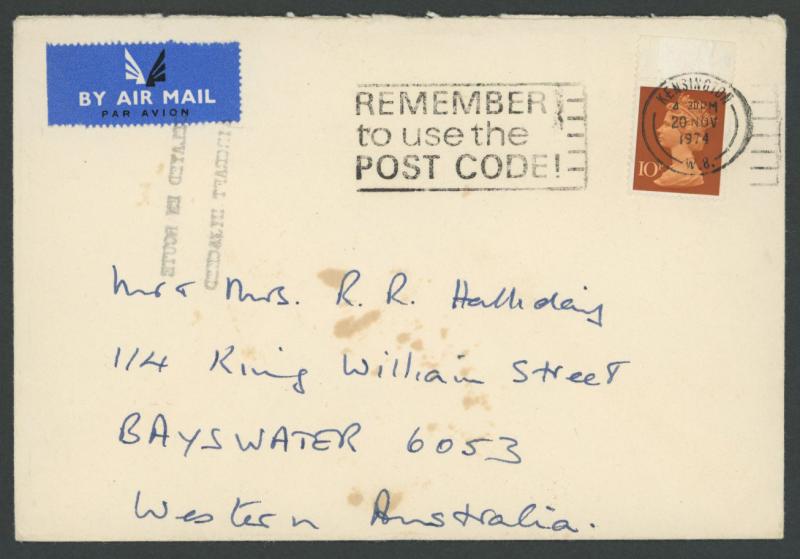 BY AIR MAIL
PAR AVION
REMEMBER
to use the
POST CODE!
KENSINGTON
4 30PM
20 NOV
1974
W.8.
10P
AIRCRAFT HIJACKED
DELAYED EN ROUTE
Mr & Mrs. R. R. Halliday
114 King William Street
BAYSWATER 6053
Western Australia.